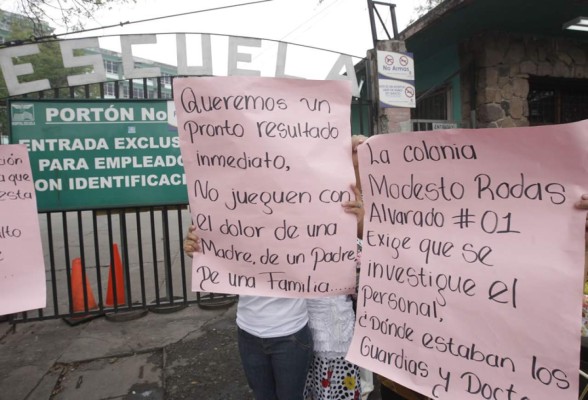 ESCUELA
PORTÓN No
ENTRADA EXCLUS
PARA EMPLEADO
ON IDENTIFICAC
No Armas
a que
esta
alto
Queremos un
Pronto resultado
inmediato,
No jueguen con
el dolor de una
Madre, de un Padre
De una Familia...
La colonia
Modesto Rodas
Alvarado #01
Exige que se
investigue el
personal,
¿Dónde estaban los
Guardias y Docto